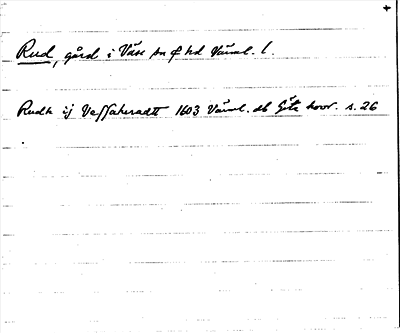 Rud, gård i Väse sn o hd Värml. l.
Rudh ij Veſſahäradt 1603 Värml. db Göta hovr. s. 26